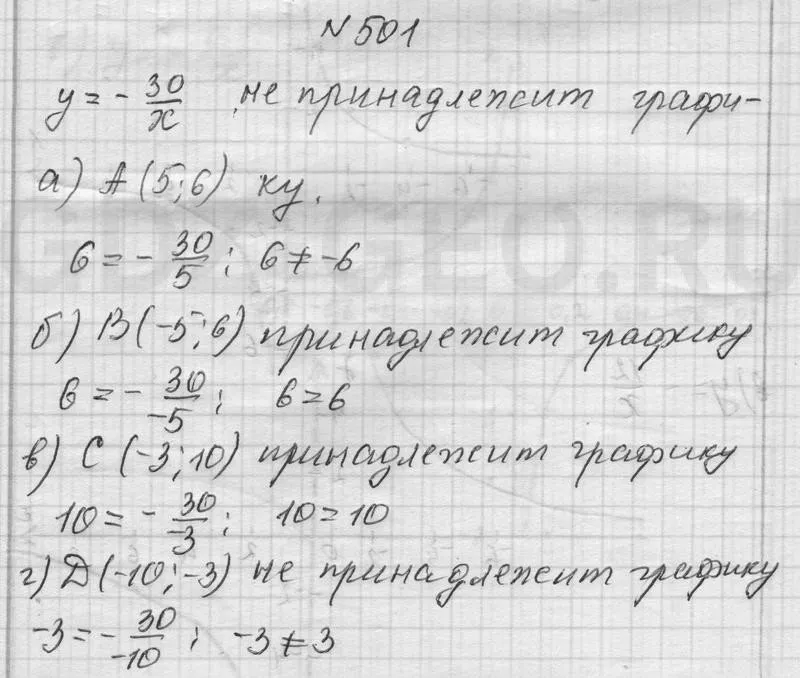 N 501
y = - 30/x не принадлежит графи-
а) A (5; 6) ку.
6 = - 30/5; 6 ≠ -6
б) B (-5; 6) принадлежит графику
6 = - 30/-5; 6 = 6
в) C (-3; 10) принадлежит графику
10 = - 30/-3; 10 = 10
г) D (-10; -3) не принадлежит графику
-3 = - 30/-10; -3 ≠ 3